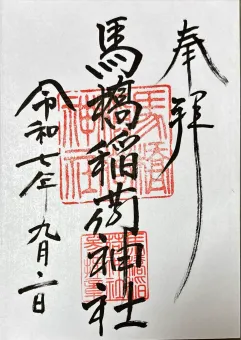 奉拝
馬橋稲荷神社
令和七年九月二日